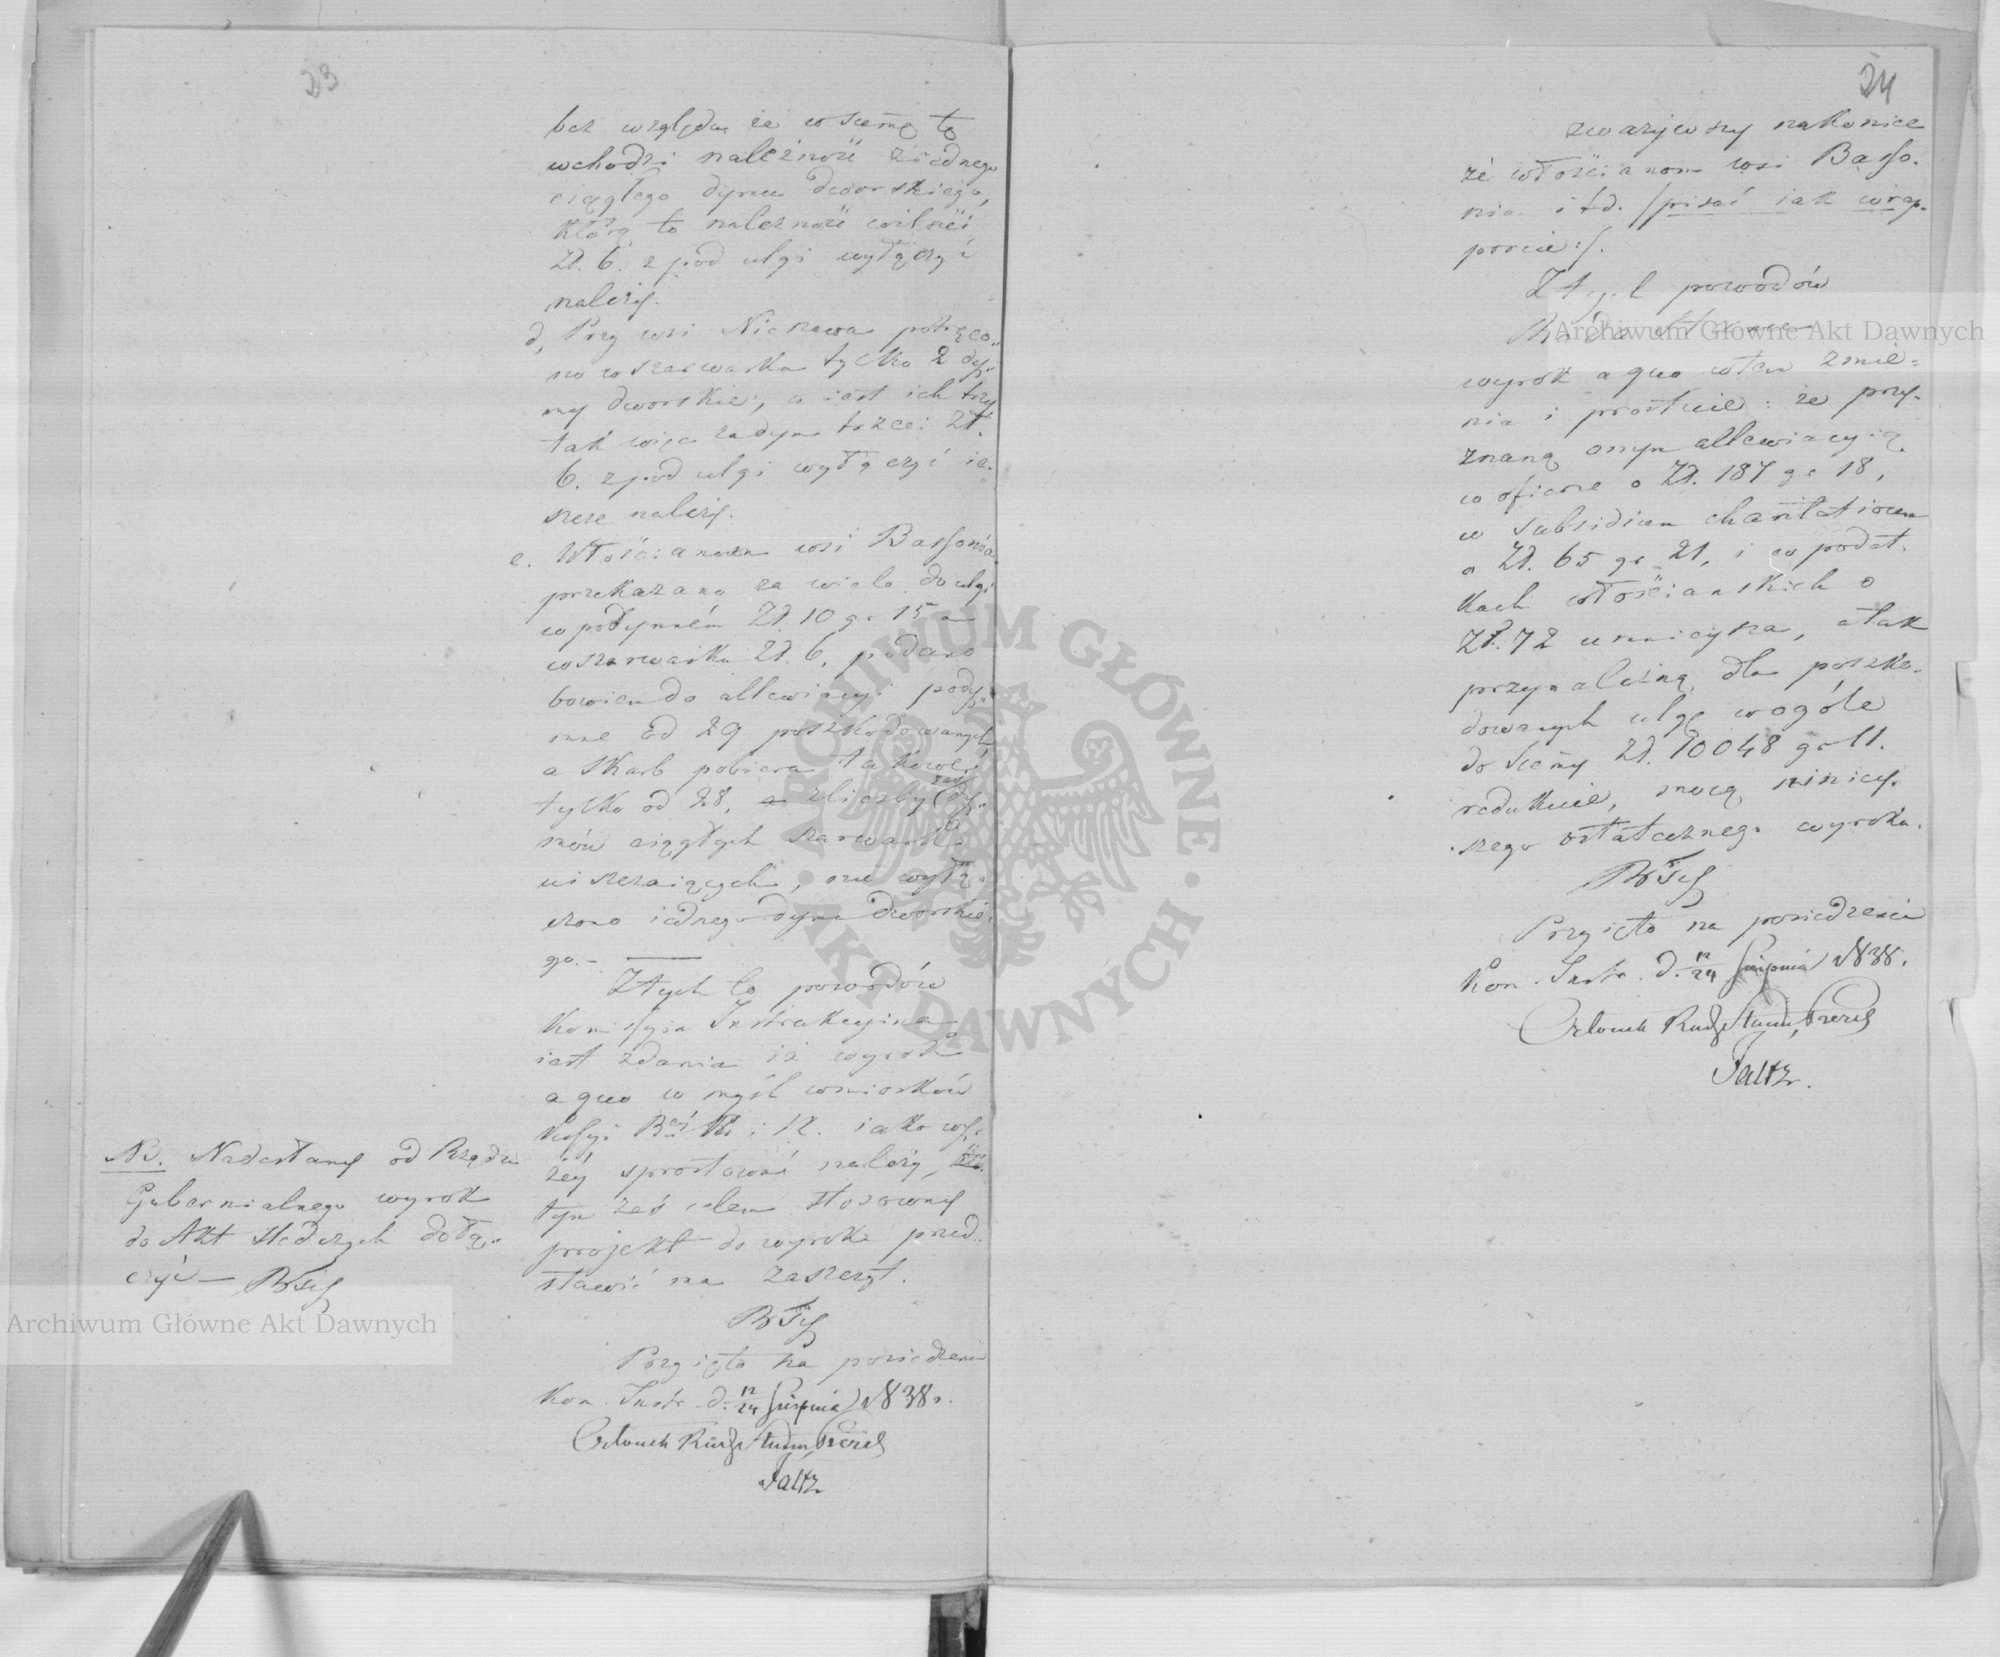 23
bez względu że w sumę tę
wchodzi należność
ciągłego dymu dworskiego,
którą to należność w ilości
Zł. 6. z pod ulgi wyłączyć
należy.
d, Przy wsi Nieszawa potrąco-
no w szarwarku tylko 2 dy-
my dworskie, a iest ich trzy
tak więc za dym trzeci Zł.
6. z pod ulgi wyłączyć ie-
szcze należy.
e. Włościanom wsi Bassonia
przekazano za wiele do ulgi
w podymném Zł. 10 gr 15 a
w szarwarku Zł. 6, podano
bowiem do allewiacyi pody-
mne od 29 poszkodowanych
a Skarb pobiera takowe
tylko od 28, z liczby zaś dy-
mów ciągłych szarwark
uiszczaiących, nie wyłą-
czono iednego dymu dworskie-
go. —
Z tych to powodów
Komissyia Instrukcyina
iest zdania iż wyrok
a quo w myśl wniosków
i 12. iako wy-
żéy sprostować należy,
tym zaś celem stosowny
projekt do wyroku przed-
stawić na zaszczyt.
Przyięto na posiedzeniu
Kom. Instr. d. 12/24 Sierpnia 1838 r.
Członek Rady Stanu, Prezes
Faltz.
NB. Nadesłany od Rządu
Gubernialnego wyrok
do Akt Śledczych dołą-
czyć —
24
zważywszy nakoniec
że włościanom wsi Basso-
nia i t d. /pisać iak w rap-
porcie:/.
Z tych powodów
Rada Stanu
wyrok a quo w tem zmie-
nia i prostuie: że przy-
znaną onym allewiacyią
w ofierze o Zł. 187 gr 18,
w subsidium charitativum
o Zł. 65 gr 21, i w podat-
kach włościańskich o
Zł. 72 umnieysza, a tak
przynależną dla poszko-
dowanych ulgę wogóle
do Summy Zł. 10048 gr 11.
redukuie, mocą niniey-
szego ostatecznego wyroku.
Przyięto na posiedzeniu
Kom. Instr. d. 12/24 Sierpnia 1838.
Członek Rady Stanu, Prezes
Faltz.
Archiwum Główne Akt Dawnych
Archiwum Główne Akt Dawnych
ARCHIWUM GŁÓWNE · AKT DAWNYCH ·